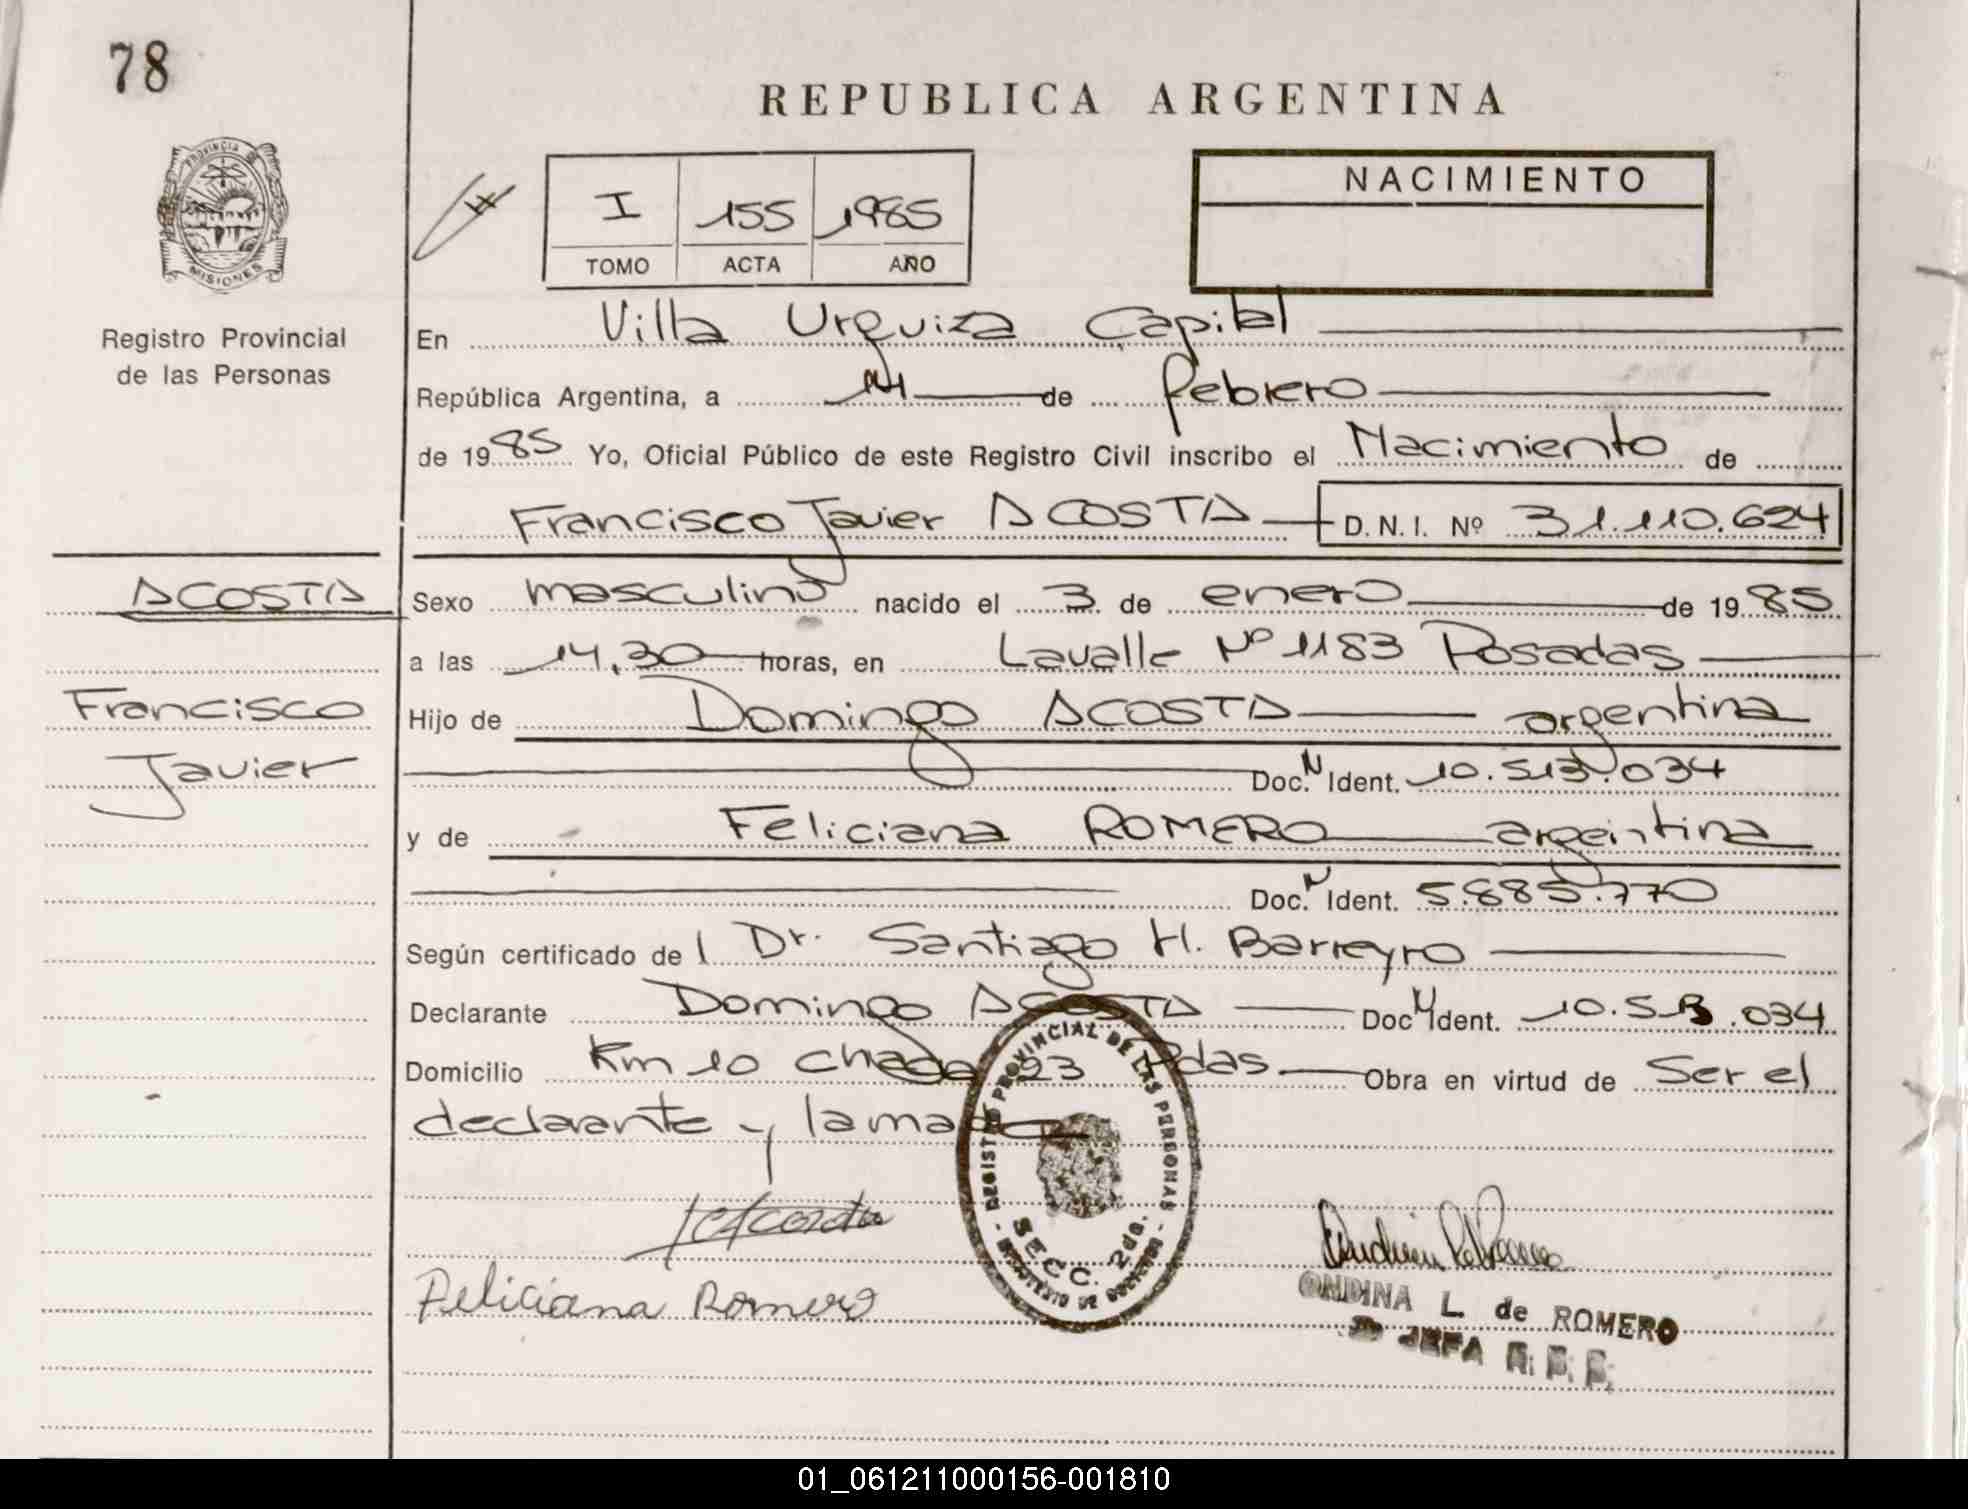 78
REPUBLICA ARGENTINA
PROVINCIA DE
MISIONES
Registro Provincial
de las Personas
I 155 1985
TOMO ACTA AÑO
NACIMIENTO
En Villa Urquiza Capital
República Argentina, a 14 de febrero
de 1985 Yo, Oficial Público de este Registro Civil inscribo el Nacimiento de
Francisco Javier ACOSTA D.N.I. Nº 31.110.624
ACOSTA
Francisco
Javier
Sexo masculino nacido el 3 de enero de 1985
a las 14,30 horas, en Lavalle Nº 1183 Posadas
Hijo de Domingo ACOSTA argentina
Doc. N Ident. 10.513.034
y de Feliciana ROMERO argentina
Doc. N Ident. 5.885.770
Según certificado del Dr. Santiago H. Barreyro
Declarante Domingo ACOSTA Doc N Ident. 10.513.034
Domicilio Km 10 chacra 23 Pdas Obra en virtud de Ser el
declarante y la madre
REGISTRO PROVINCIAL DE LAS PERSONAS
SECC. 2da.
Feliciana Romero
ONDINA L. de ROMERO
JEFA R. P. P.
01_061211000156-001810